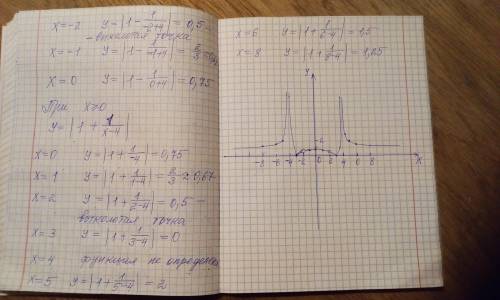 x=-2 y=|1-\frac{1}{-2+4}|=0,5 -
- выколотая точка
x=-1 y=|1-\frac{1}{-1+4}|=\frac{2}{3}
x=0 y=|1-\frac{1}{0+4}|=0,75
При x>0
y=|1+\frac{1}{x-4}|
x=0 y=|1+\frac{1}{-4}|=0,75
x=1 y=|1+\frac{1}{1-4}|=\frac{2}{3}≈0,67
x=2 y=|1+\frac{1}{2-4}|=0,5 -
выколотая точка
x=3 y=|1+\frac{1}{3-4}|=0
x=4 функция не определена
x=5 y=|1+\frac{1}{5-4}|=2
x=6 y=|1+\frac{1}{6-4}|=1,5
x=8 y=|1+\frac{1}{8-4}|=1,25
y
-8 -6 -4 -2 0 2 4 6 8 x